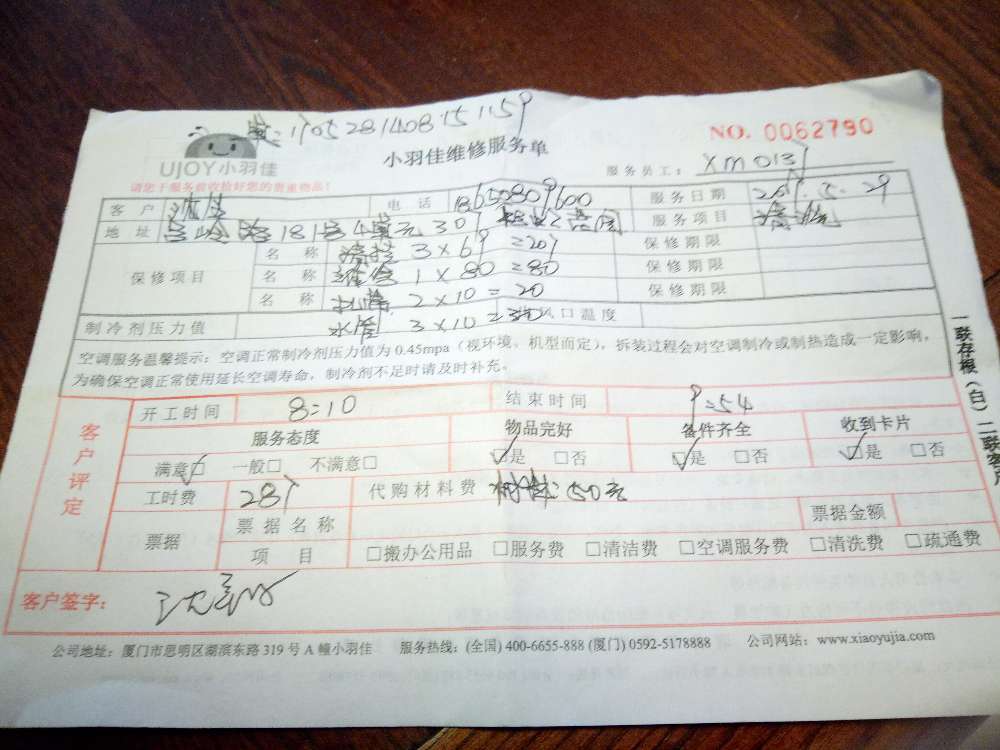 1705281408151159
NO. 0062790
UJOY小羽佳
小羽佳维修服务单
服务员工: XM0137
请您于服务前收捡好您的贵重物品!
客 户 电 话 18650809600 服务日期 2017.5.29
地 址 181号4单元307 服务项目 清洗
保修项目
名 称 清洗 3×69=207 保修期限
名 称 维修 1×80=80 保修期限
名 称 2×10=20 保修期限
制冷剂压力值 3×10=30 出风口温度
空调服务温馨提示:空调正常制冷剂压力值为0.45mpa(视环境、机型而定),拆装过程会对空调制冷或制热造成一定影响,
为确保空调正常使用延长空调寿命,制冷剂不足时请及时补充。
客户评定
开工时间 8:10 结束时间 9:54
服务态度 物品完好 备件齐全 收到卡片
满意☑ 一般□ 不满意□ ☑是 □否 ☑是 □否 ☑是 □否
工时费 287 代购材料费 材料:50元
票据 票据名称 票据金额
项 目 □搬办公用品 □服务费 □清洁费 □空调服务费 □清洗费 □疏通费
客户签字:
公司地址:厦门市思明区湖滨东路319号A幢小羽佳 服务热线:(全国) 400-6655-888 (厦门) 0592-5178888 公司网站:www.xiaoyujia.com
一联存根(白)二联客户